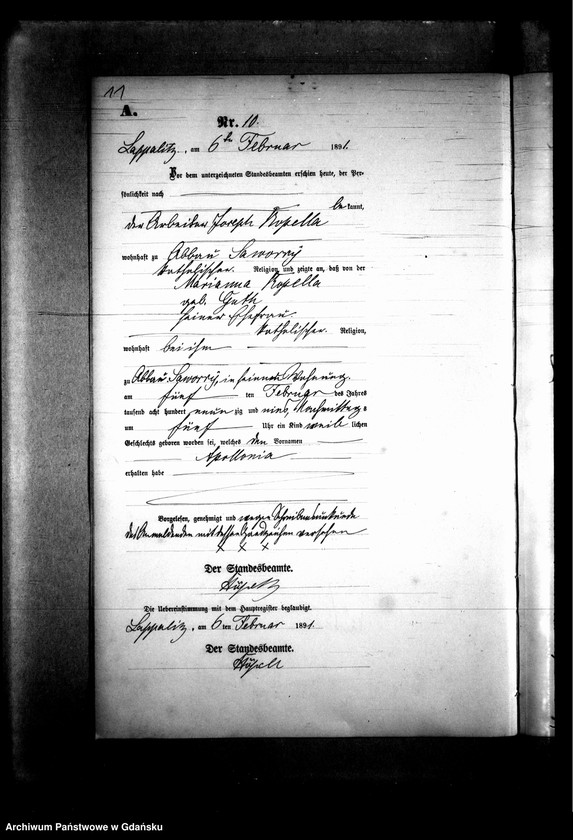 11
A.
Nr. 10.
Lappalitz, am 6ten Februar 1891.
Vor dem unterzeichneten Standesbeamten erschien heute, der Per-
sönlichkeit nach
bekannt,
der Arbeiter Joseph Kopella
wohnhaft zu Abbau Saworry
katholischer Religion, und zeigte an, daß von der
Marianna Kopella
geb. Guth
seiner Ehefrau
katholischer Religion,
wohnhaft bei ihm
zu Abbau Saworry, in seiner Wohnung
am fünf ten Februar des Jahres
tausend acht hundert neunzig und eins, Nachmittags
um fünf Uhr ein Kind weiblichen
Geschlechts geboren worden sei, welches den Vornamen
Apollonia
erhalten habe
Vorgelesen, genehmigt und wegen Schreibensunkunde
des Anmeldenden mit dessen Handzeichen versehen
x x x
Der Standesbeamte.
Die Uebereinstimmung mit dem Hauptregister beglaubigt.
Lappalitz, am 6ten Februar 1891.
Der Standesbeamte.
Archiwum Państwowe w Gdańsku